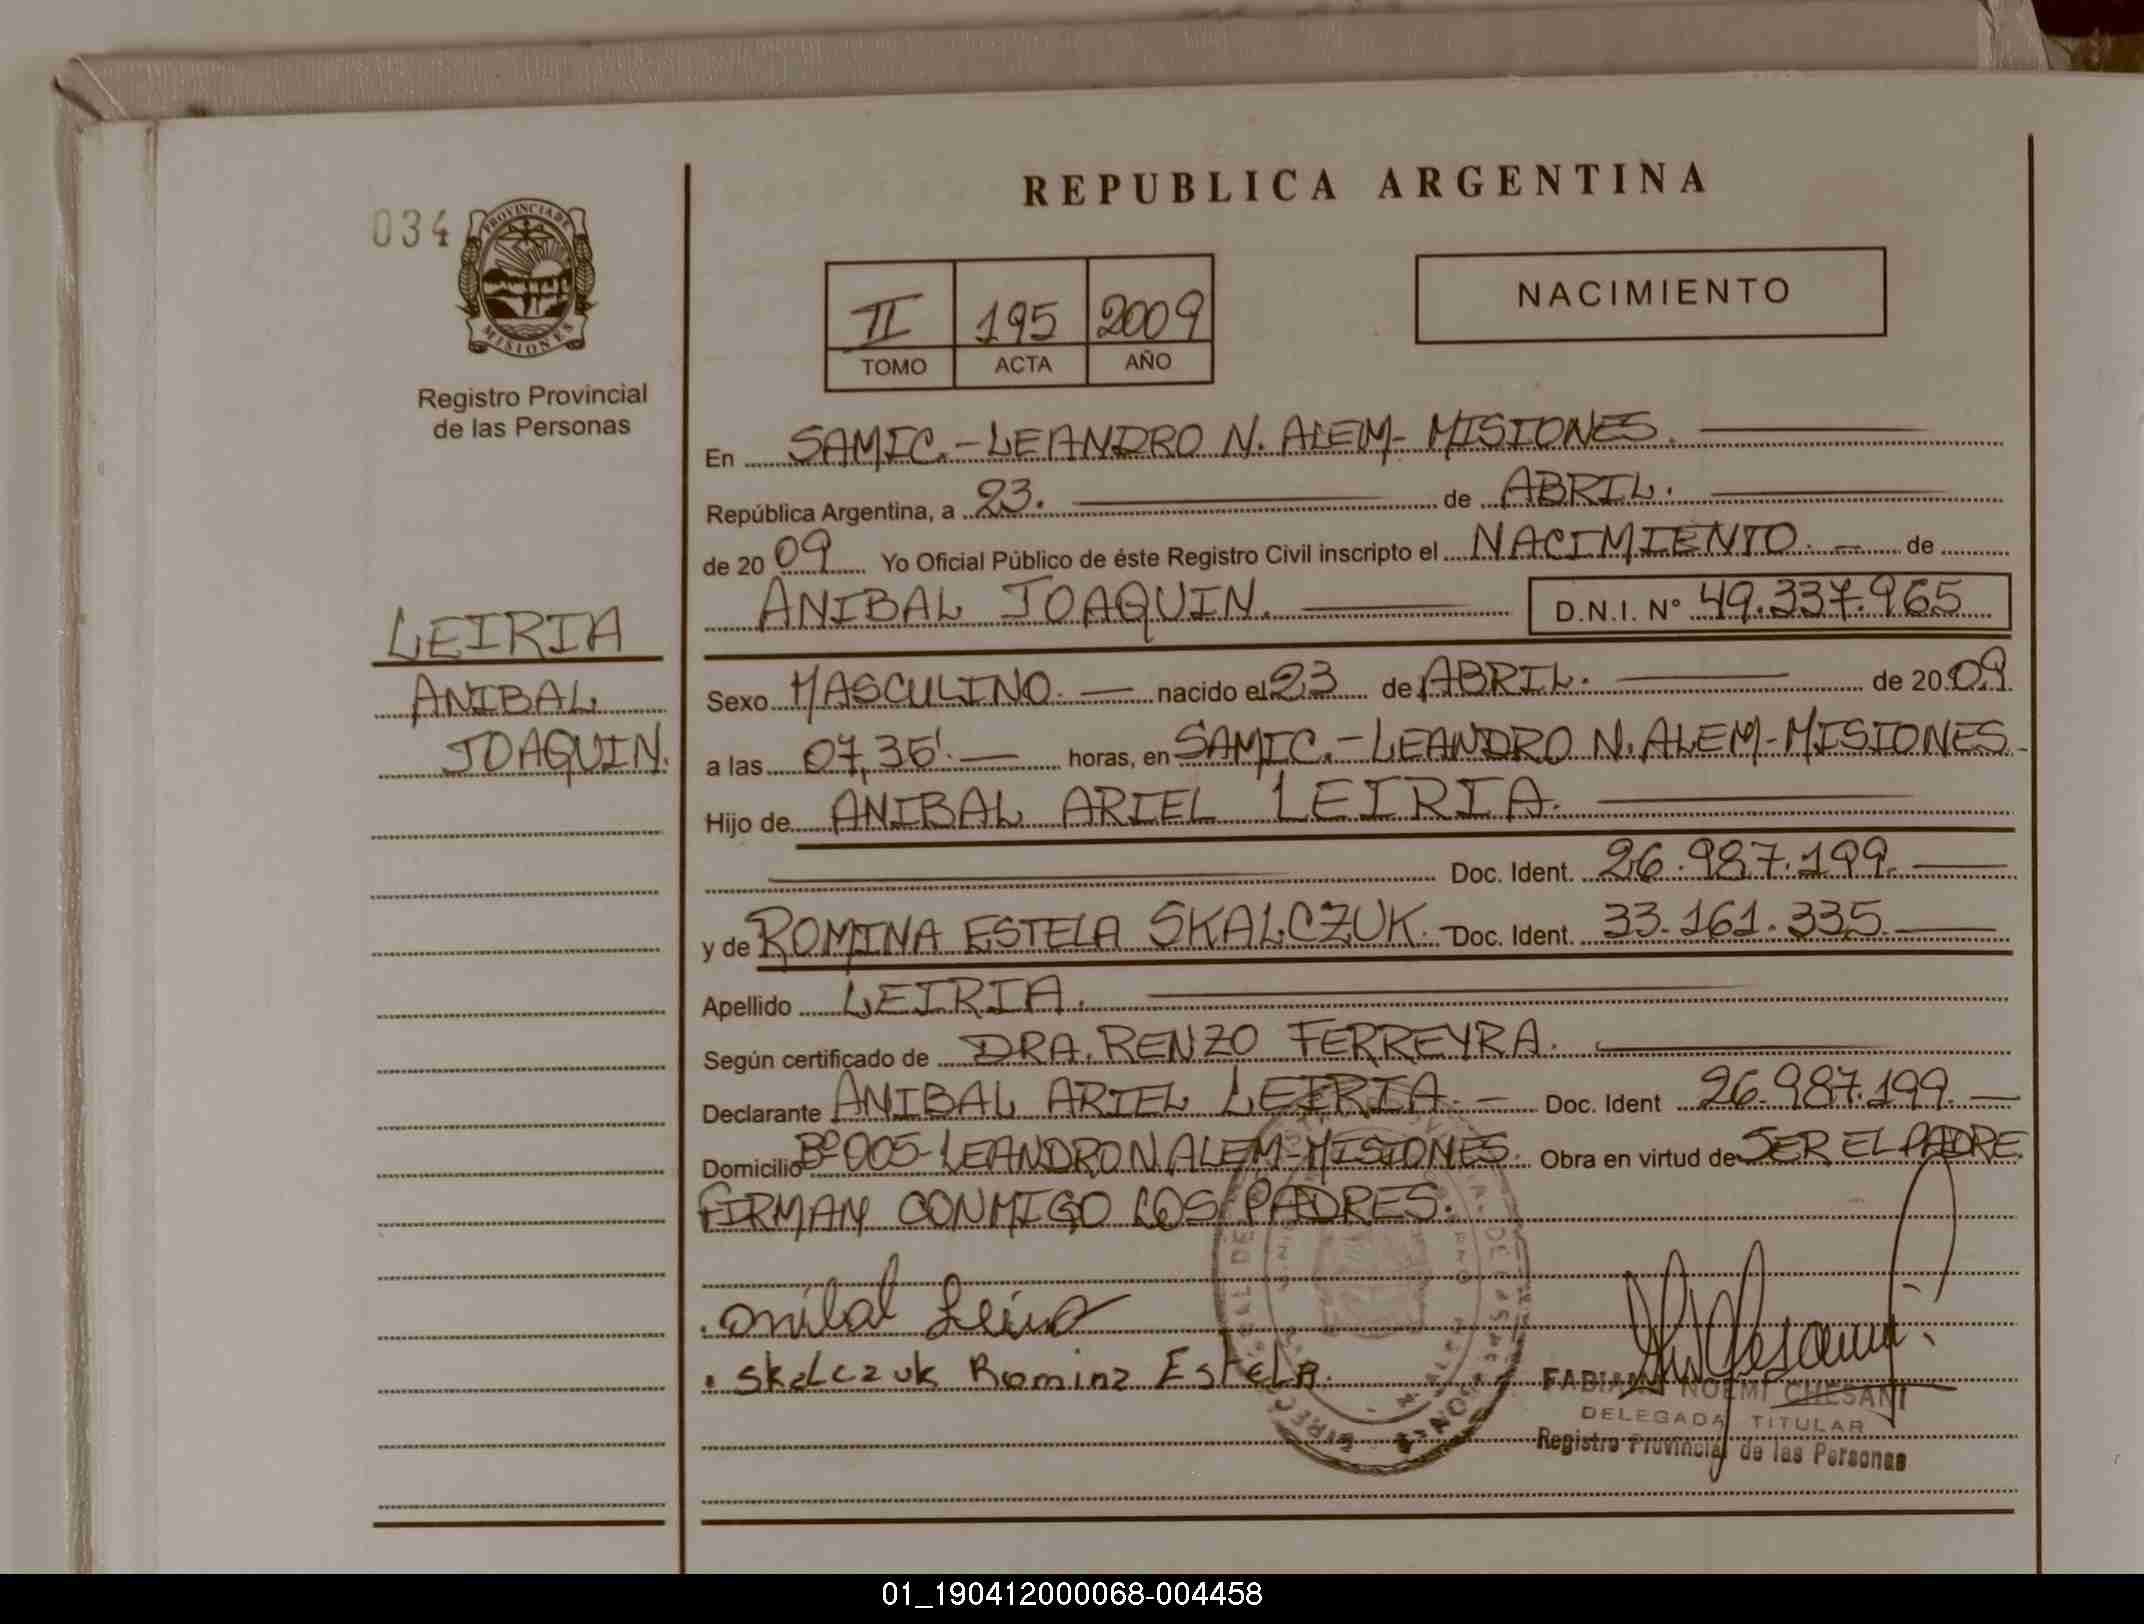 034
PROVINCIA DE
MISIONES
Registro Provincial
de las Personas
LEIRIA
ANIBAL
JOAQUIN.
REPUBLICA ARGENTINA
II 195 2009
TOMO ACTA AÑO
NACIMIENTO
En SAMIC.-LEANDRO N. ALEM- MISIONES.
República Argentina, a 23. de ABRIL.
de 2009 Yo Oficial Público de éste Registro Civil inscripto el NACIMIENTO. de
ANIBAL JOAQUIN. D.N.I. N° 49.337.965
Sexo MASCULINO. nacido el 23 de ABRIL. de 2009.
a las 07,35'. horas, en SAMIC.-LEANDRO N. ALEM-MISIONES
Hijo de ANIBAL ARIEL LEIRIA.
Doc. Ident. 26.987.199.
y de ROMINA ESTELA SKALCZUK. Doc. Ident. 33.161.335.
Apellido LEIRIA.
Según certificado de DRA. RENZO FERREYRA.
Declarante ANIBAL ARIEL LEIRIA. Doc. Ident 26.987.199.
Domicilio Bº 005-LEANDRO N. ALEM-MISIONES. Obra en virtud de SER EL PADRE.
FIRMAN CONMIGO LOS PADRES.
Anibal Leiria
Skalczuk Romina Estela.
FABIANA NOEMI CHESANI
DELEGADA TITULAR
Registro Provincial de las Personas
01_190412000068-004458